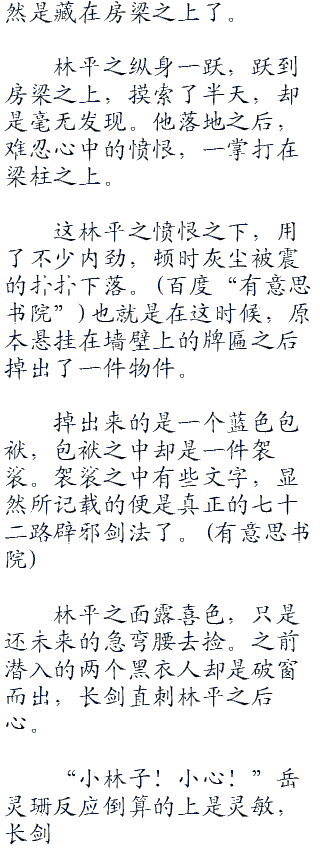 然是藏在房梁之上了。
林平之纵身一跃，跃到
房梁之上，摸索了半天，却
是毫无发现。他落地之后，
难忍心中的愤恨，一掌打在
梁柱之上。
这林平之愤恨之下，用
了不少内劲，顿时灰尘被震
的扑扑下落。(百度“有意思
书院”)也就是在这时候，原
本悬挂在墙壁上的牌匾之后
掉出了一件物件。
掉出来的是一个蓝色包
袱，包袱之中却是一件袈
裟。袈裟之中有些文字，显
然所记载的便是真正的七十
二路辟邪剑法了。(有意思书
院)
林平之面露喜色，只是
还未来的急弯腰去捡。之前
潜入的两个黑衣人却是破窗
而出，长剑直刺林平之后
心。
“小林子！小心！”岳
灵珊反应倒算的上是灵敏，
长剑